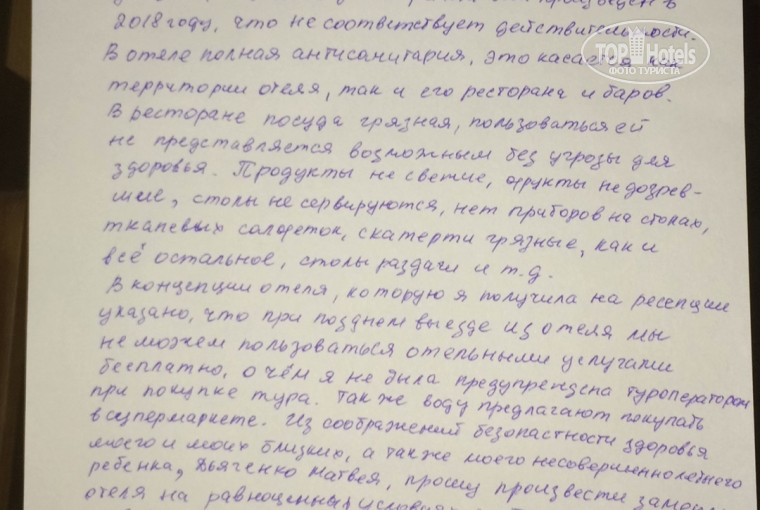 2018 году, что не соответствует действительности.
В отеле полная антисанитария, это касается как
территории отеля, так и его ресторана и баров.
В ресторане посуда грязная, пользоваться ей
не представляется возможным без угрозы для
здоровья. Продукты не свежие, фрукты недозрев-
шие, столы не сервируются, нет приборов на столах,
тканевых салфеток, скатерти грязные, как и
всё остальное, столы раздачи и т.д.
В концепции отеля, которую я получила на ресепшн
указано, что при позднем выезде из отеля мы
не можем пользоваться отельными услугами
бесплатно, о чём я не была предупреждена туроператором
при покупке тура. Также воду предлагают покупать
в супермаркете. Из соображений безопастности здоровья
моего и моих близких, а также моего несовершеннолетнего
ребенка, Дьяченко Матвея, прошу произвести
отеля на равноценных
TOP Hotels
ФОТО ТУРИСТА